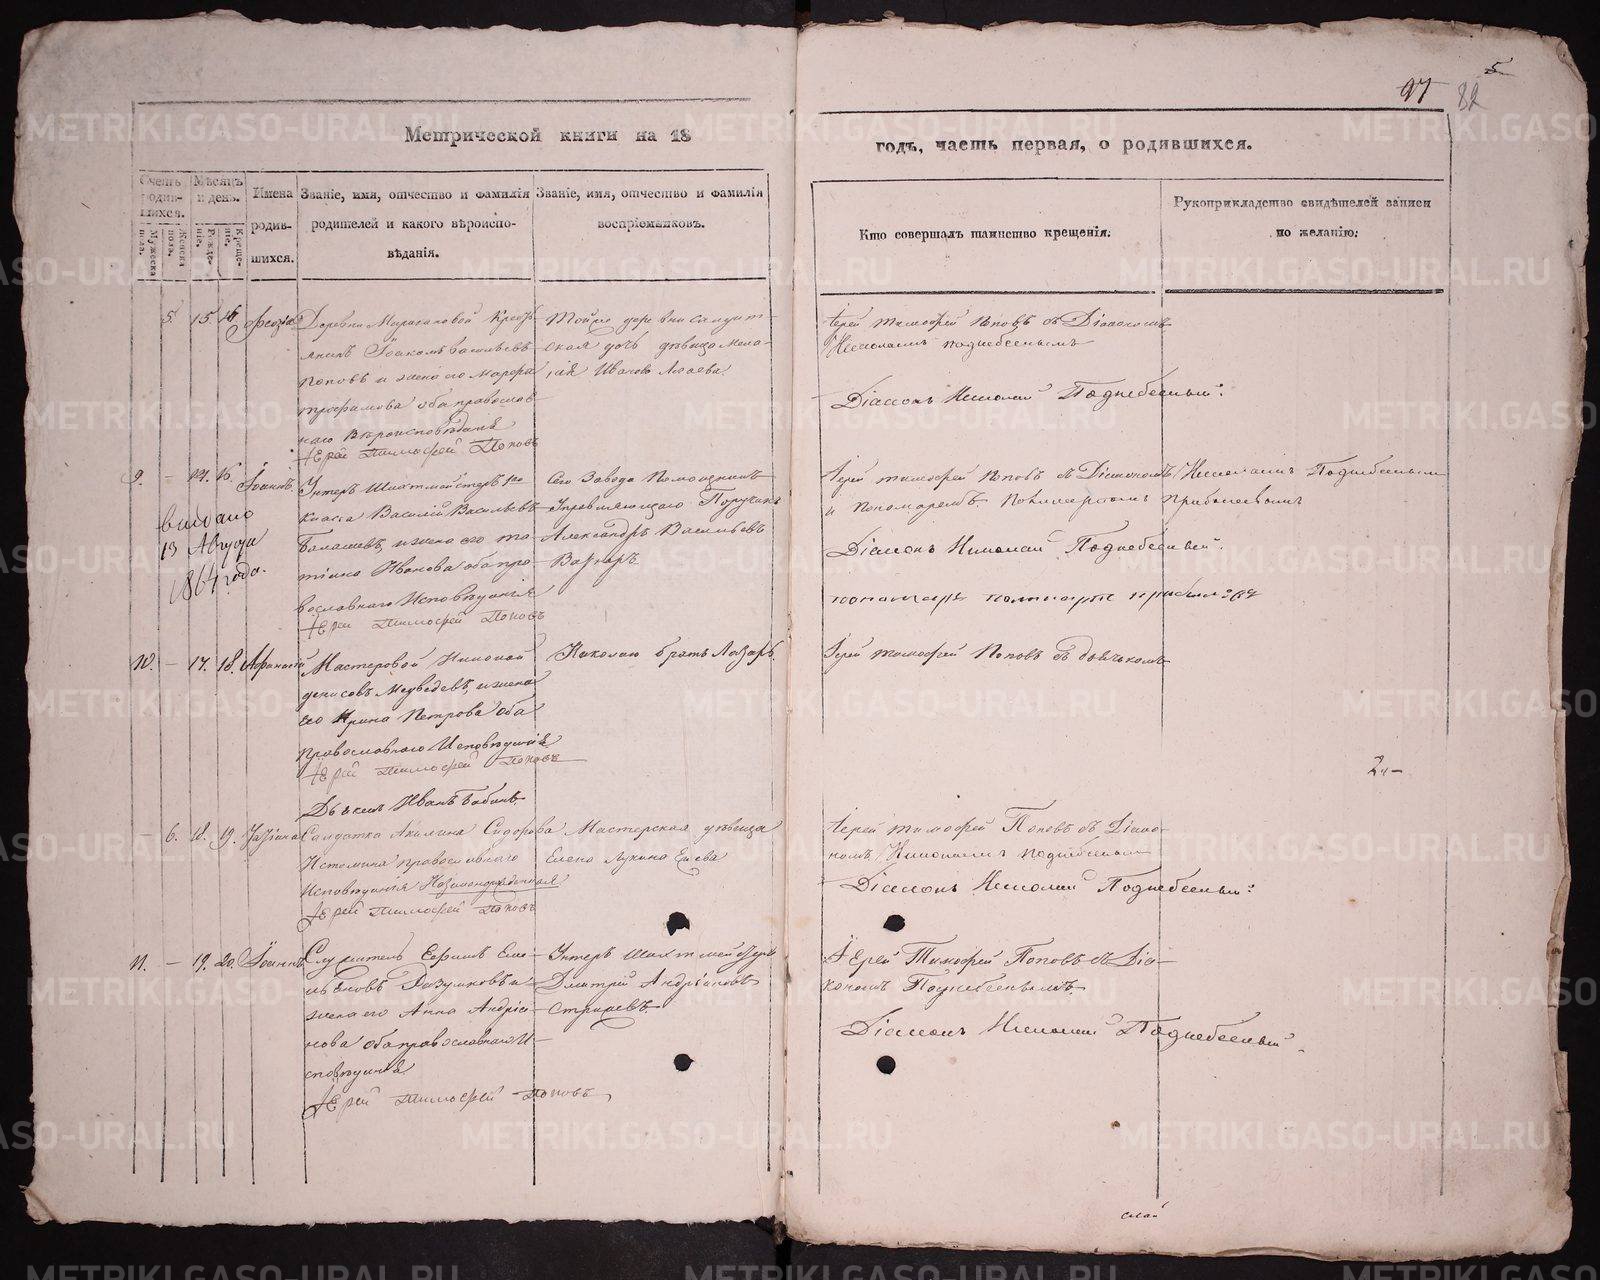 27 82
5
Метрической книги на 18
годъ, часть первая, о родившихся.
Счетъ родившихся.
Мѣсяцъ и день.
Имена родившихся.
Званіе, имя, отчество и фамилія родителей и какого вѣроисповѣданія.
Званіе, имя, отчество и фамилія воспріемниковъ.
Кто совершалъ таинство крещенія.
Рукоприкладство свидѣтелей записи по желанію.
Мужеска пола.
Женска пола.
Рожденіе.
Крещеніе.
5. 15. 16
Деревни
Поповъ и жена его Марфа
Трофимова оба православ-
наго вѣроисповѣданія
Іерей Тимофей Поповъ
Тойже деревни солдат-
ская дочь дѣвица Мела-
нія Иванова
Іерей Тимофей Поповъ съ Діакономъ
Николаемъ Поднебеснымъ
Діаконъ Николай Поднебесный
9. – 14. 16. Іоаннъ.
выдано
13 Августа
1864 года.
Унтеръ Шихтмейстеръ 1го
класса Василій Васильевъ
Балашевъ, и жена его Та-
тіана Иванова оба пра-
вославнаго Исповѣданія
Іерей Тимофей Поповъ
Сего Завода Помощникъ
Управляющаго Поручикъ
Александръ Васильевъ
Іерей Тимофей Поповъ съ Діакономъ Николаемъ Поднебеснымъ
и Пономаремъ
Діаконъ Николай Поднебесный.
10. – 17. 18. Афанасій
Мастеровой Николай
Денисовъ Медведевъ, и жена
его Ирина Петрова оба
Православнаго Исповѣданія
Іерей Тимофей Поповъ
Николаю братъ Лазарь.
Іерей Тимофей Поповъ съ дьячкомъ
Дьячекъ Иванъ Бабинъ
– 6. 18. 19. Татіана
Солдатка Акилина Сидорова
Истомина православнаго
Исповѣданія Незаконорожденная
Іерей Тимофей Поповъ
Мастерская дѣвица
Елена Лукина
Іерей Тимофей Поповъ съ Діако-
номъ Николаемъ Поднебеснымъ
Діаконъ Николай Поднебесный
11. – 19. 20. Іоаннъ
Служитель Ефимъ Еме-
льяновъ Разумковъ и
жена его Анна Андріа-
нова оба православнаго И-
сповѣданія
Іерей Тимофей Поповъ
Унтеръ Шихтмейстеръ
Дмитрій Андріановъ
Іерей Тимофей Поповъ съ Діа-
кономъ Поднебеснымъ.
Діаконъ Николай Поднебесный
METRIKI.GASO-URAL.RU